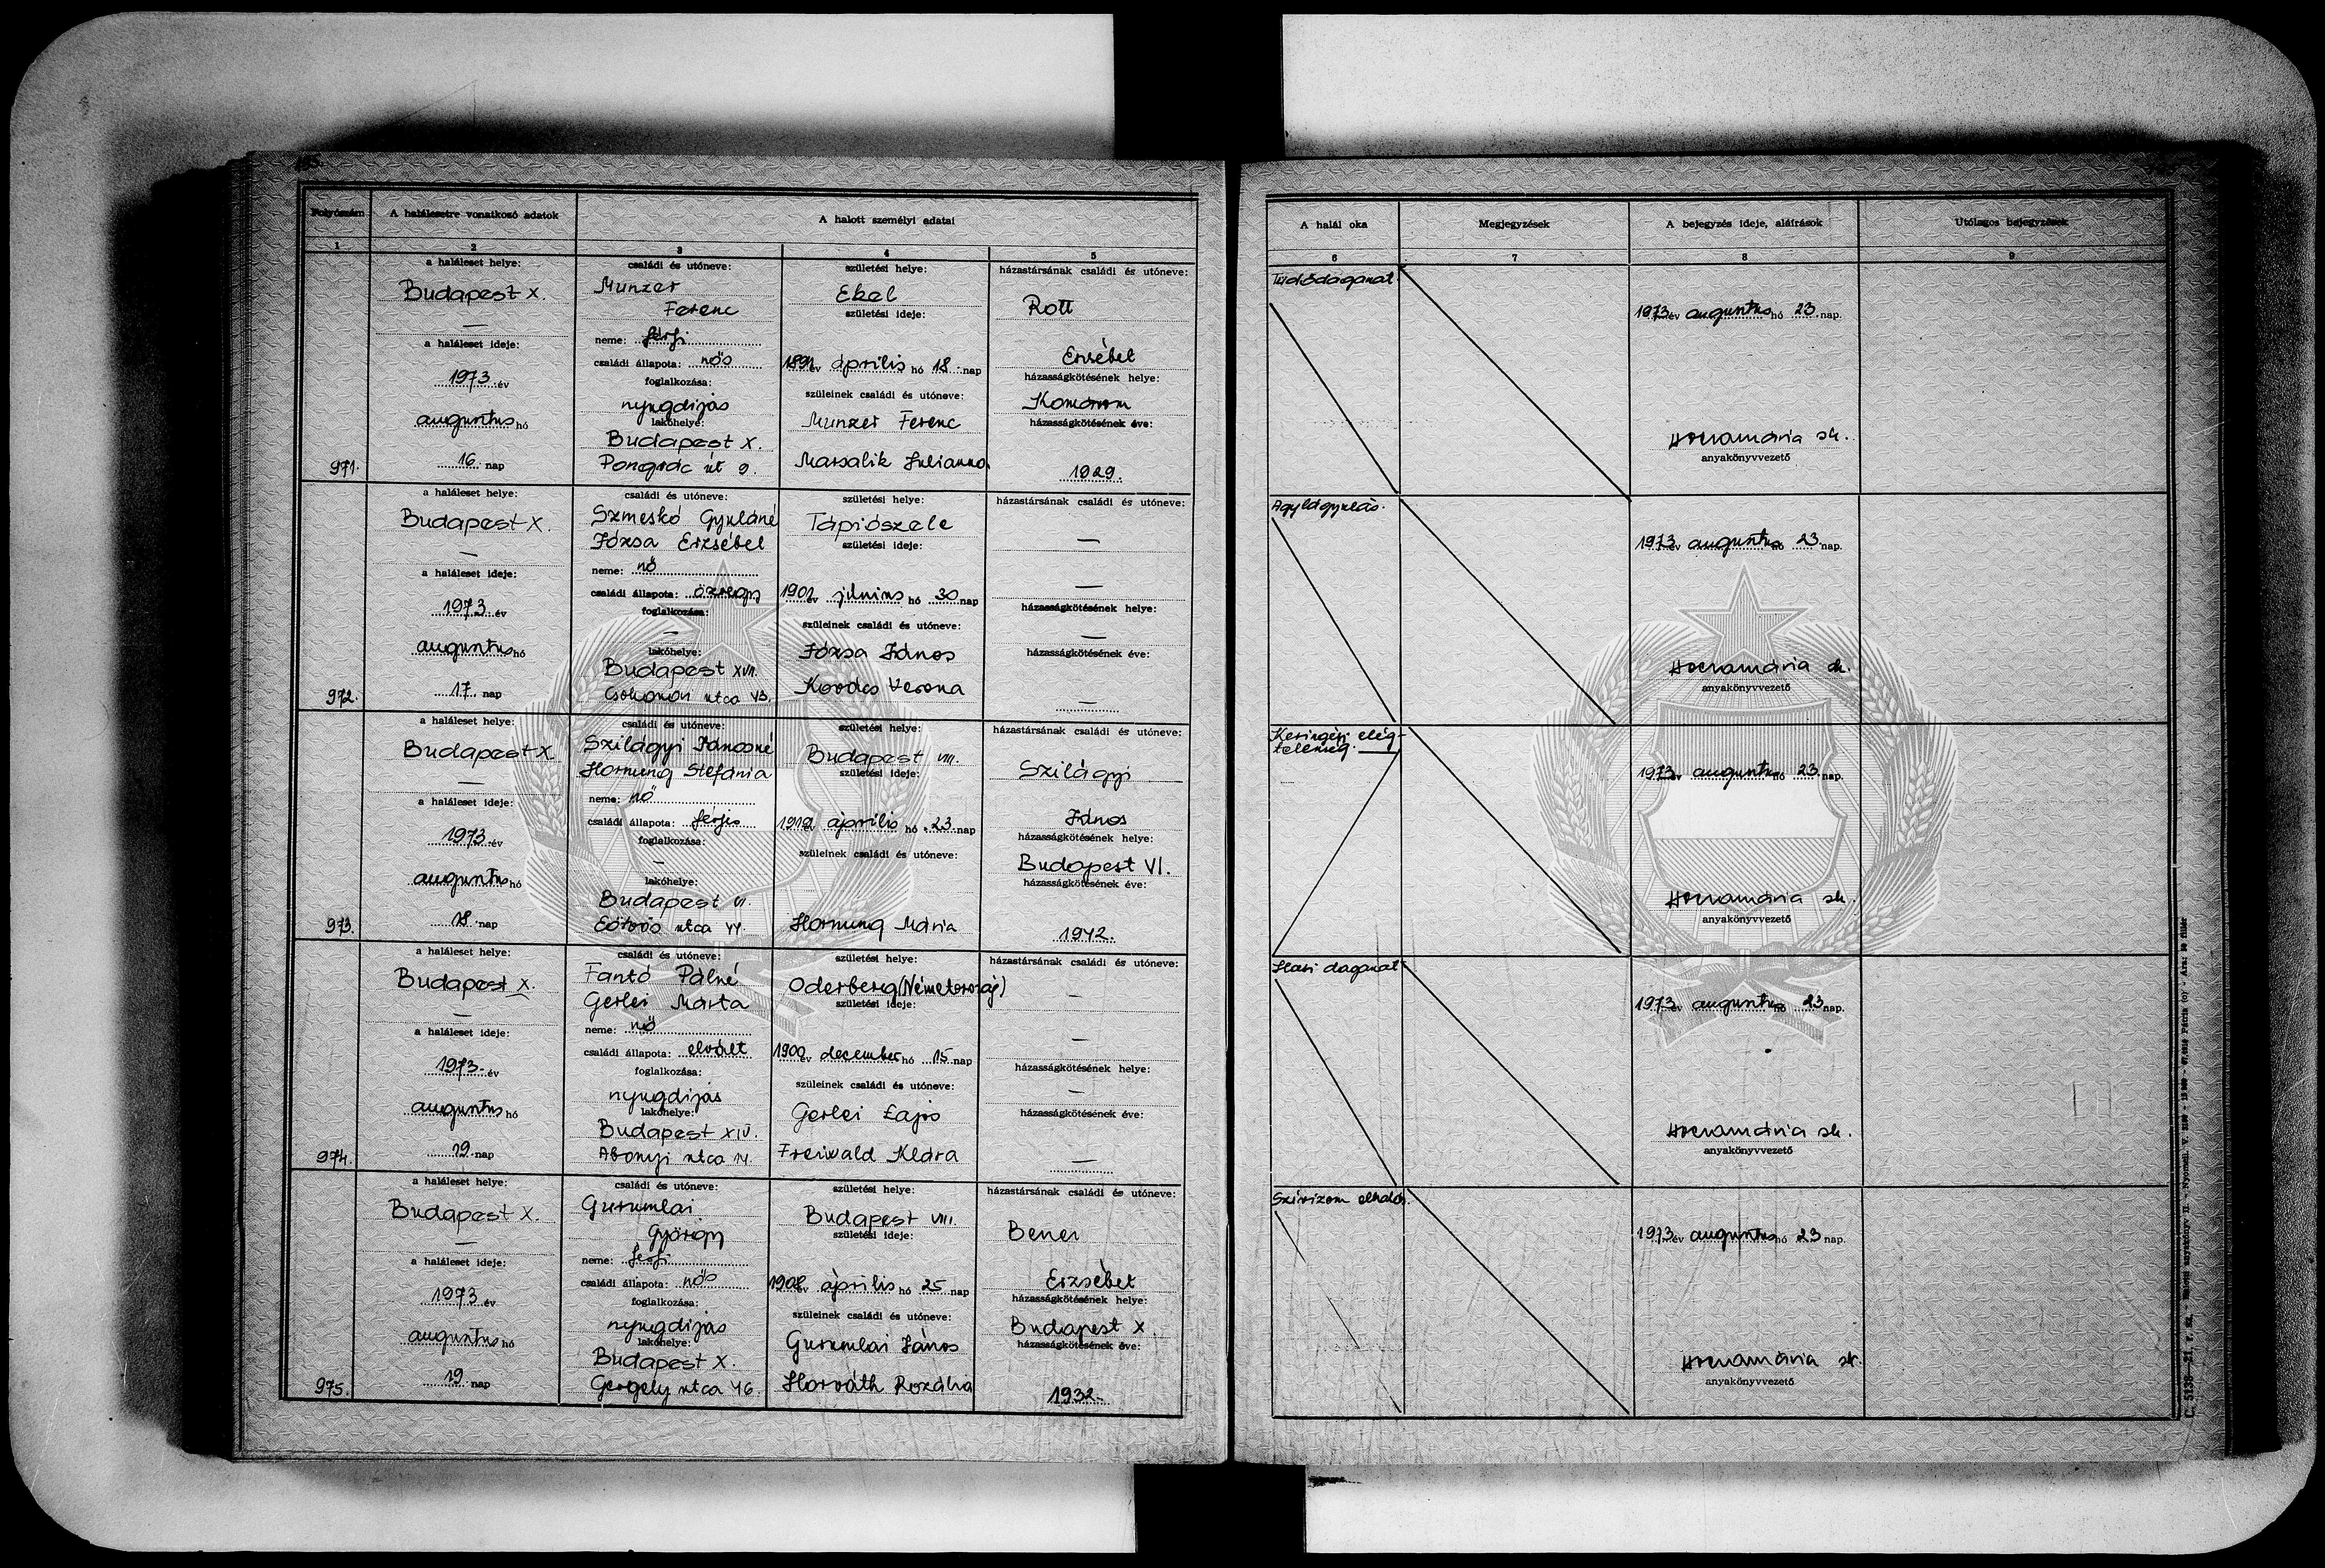 Folyószám
A halálesetre vonatkozó adatok
A halott személyi adatai
1
2
3
4
5
a haláleset helye:
Budapest X.
—
a haláleset ideje:
1973 év
augusztus hó
16 nap
971.
családi és utóneve:
Munzer
Ferenc
neme: férfi
családi állapota: nős
foglalkozása:
nyugdíjas
lakóhelye:
Budapest X.
Pongrác út 9.
születési helye:
Ekel
születési ideje:
április hó 18 nap
szüleinek családi és utóneve:
Munzer Ferenc
Marsalik Julianna
házastársának családi és utóneve:
Rott
Erzsébet
házasságkötésének helye:
Komárom
házasságkötésének éve:
1929.
a haláleset helye:
Budapest X.
—
a haláleset ideje:
1973 év
augusztus hó
17 nap
972.
családi és utóneve:
Szmeskó Gyuláné
Józsa Erzsébet
neme: nő
családi állapota: özvegy
foglalkozása:
—
lakóhelye:
Budapest XVII.
Csokonai utca 43.
születési helye:
Tápiószele
születési ideje:
június hó 30 nap
szüleinek családi és utóneve:
Józsa János
Kovács Verona
házastársának családi és utóneve:
—
—
házasságkötésének helye:
—
házasságkötésének éve:
—
a haláleset helye:
Budapest X.
—
a haláleset ideje:
1973 év
augusztus hó
18 nap
973.
családi és utóneve:
Szilágyi Jánosné
Hornung Stefánia
neme: nő
családi állapota: férjes
foglalkozása:
—
lakóhelye:
Budapest VI.
Eötvös utca 44.
születési helye:
Budapest VIII.
születési ideje:
április hó 23 nap
szüleinek családi és utóneve:
Hornung Mária
házastársának családi és utóneve:
Szilágyi
János
házasságkötésének helye:
Budapest VI.
házasságkötésének éve:
1942.
a haláleset helye:
Budapest X.
—
a haláleset ideje:
1973. év
augusztus hó
19 nap
974.
családi és utóneve:
Fantó Pálné
Gerlei Márta
neme: nő
családi állapota: elvált
foglalkozása:
nyugdíjas
lakóhelye:
Budapest XIV.
Abonyi utca
születési helye:
Oderberg (Németország)
születési ideje:
1900 év december hó 15 nap
szüleinek családi és utóneve:
Gerlei Lajos
Freiwald Klára
házastársának családi és utóneve:
—
—
házasságkötésének helye:
—
házasságkötésének éve:
—
a haláleset helye:
Budapest X.
—
a haláleset ideje:
1973 év
augusztus hó
19 nap
975.
családi és utóneve:
Gurumlai
György
neme: férfi
családi állapota: nős
foglalkozása:
nyugdíjas
lakóhelye:
Budapest X.
Gergely utca 46.
születési helye:
Budapest VIII.
születési ideje:
1908 év április hó 25 nap
szüleinek családi és utóneve:
Gurumlai János
Horváth Rozália
házastársának családi és utóneve:
Bener
Erzsébet
házasságkötésének helye:
Budapest X.
házasságkötésének éve:
1932.
A halál oka
Megjegyzések
A bejegyzés ideje, aláírások
Utólagos bejegyzések
6
7
8
9
Tüdődaganat
1973 év augusztus hó 23 nap.
sk.
anyakönyvvezető
Agylágyulás.
1973 év augusztus hó 23 nap.
sk.
anyakönyvvezető
Keringési elég-
telenség.
1973 év augusztus hó 23 nap.
sk.
anyakönyvvezető
Hasi daganat
1973 év augusztus hó 23 nap.
sk.
anyakönyvvezető
Szívizom elhalás.
1973 év augusztus hó 23 nap.
sk.
anyakönyvvezető